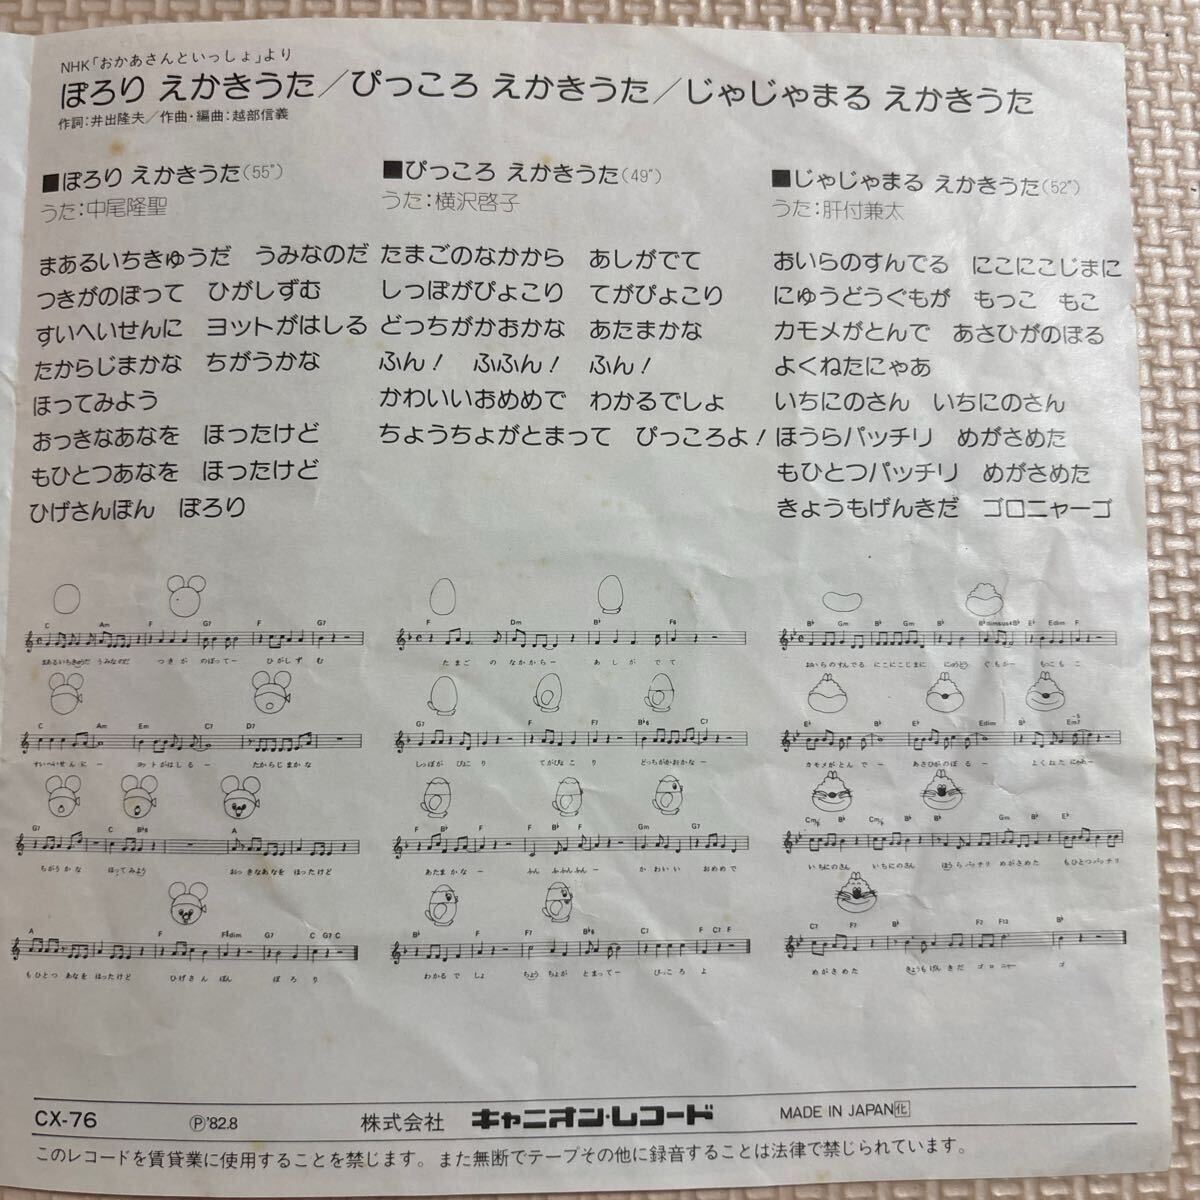 NHK「おかあさんといっしょ」より
ぽろり えかきうた／ぴっころ えかきうた／じゃじゃまる えかきうた
作詞：井出隆夫／作曲・編曲：越部信義
■ぽろり えかきうた(55")
うた：中尾隆聖
まあるいちきゅうだ うみなのだ
つきがのぼって ひがしずむ
すいへいせんに ヨットがはしる
たからじまかな ちがうかな
ほってみよう
おっきなあなを ほったけど
もひとつあなを ほったけど
ひげさんぽん ぽろり
■ぴっころ えかきうた(49")
うた：横沢啓子
たまごのなかから あしがでて
しっぽがぴょこり てがぴょこり
どっちがかおかな あたまかな
ふん！ ふふん！ ふん！
かわいいおめめで わかるでしょ
ちょうちょがとまって ぴっころよ！
■じゃじゃまる えかきうた(52")
うた：肝付兼太
おいらのすんでる にこにこじまに
にゅうどうぐもが もっこ もこ
カモメがとんで あさひがのぼる
よくねたにゃあ
いちにのさん いちにのさん
ほうらパッチリ めがさめた
もひとつパッチリ めがさめた
きょうもげんきだ ゴロニャーゴ
C Am F G7 F G7
まあるいちきゅうだ うみなのだ つきが のぼってー ひがしずむ
C Am Em C7 D7
すいへいせんにー ヨットがはしるー たからじまかな
G7 C B♭6 A
ちがうかな ほってみよう おっきなあなを ほったけど
A F F♯dim G7 C G7 C
もひとつ あなを ほったけど ひげさん ぽん ぽろり
F Dm B♭ F6
たまご の なかからー あしが でて
G7 F F7 B♭6 C7
しっぽが ぴょこり てがぴょ こり どっちがかおかなー
F B♭ F F B♭ F Gm G7
あたまかなー ふん ふふんふん かわいい おめめで
B♭ F F7 B♭6 C7 F C7 F
わかるで しょ ちょう ちょが とまってー ぴっころ よ
B♭ Gm B♭ Gm B♭ B♭dimsus4 B♭ E♭ Edim F
おいらのすんでる にこにこじまに にゅうどう ぐもがー もっこもこ
E♭ B♭ E♭ Edim B♭ Em7-5
カモメがとんでー あさひがのぼるー よくねたにゃあー
Gm B♭ E♭
いちにのさん いちにのさん ほうらパッチリ めがさめた もひとつパッチリ
C7 F7 B♭ F7 F13 B♭
めがさめた きょうもげんきだ ゴロニャー ゴ
CX-76 Ⓟ'82.8 株式会社 キャニオン・レコード MADE IN JAPAN㊗
このレコードを賃貸業に使用することを禁じます。また無断でテープその他に録音することは法律で禁じられています。